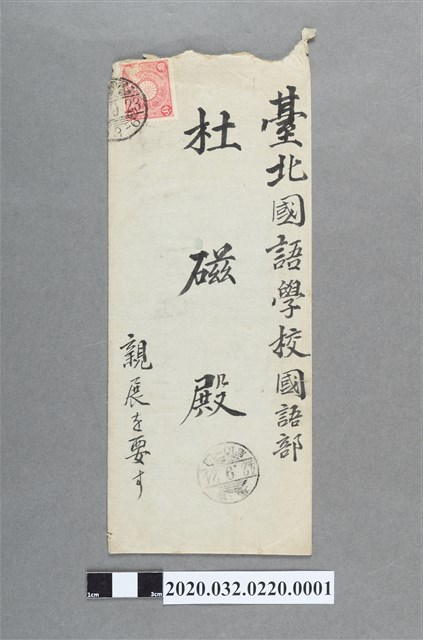 臺北國語學校國語部
杜磁殿
親展を要す
1cm
3cm
2020.032.0220.0001